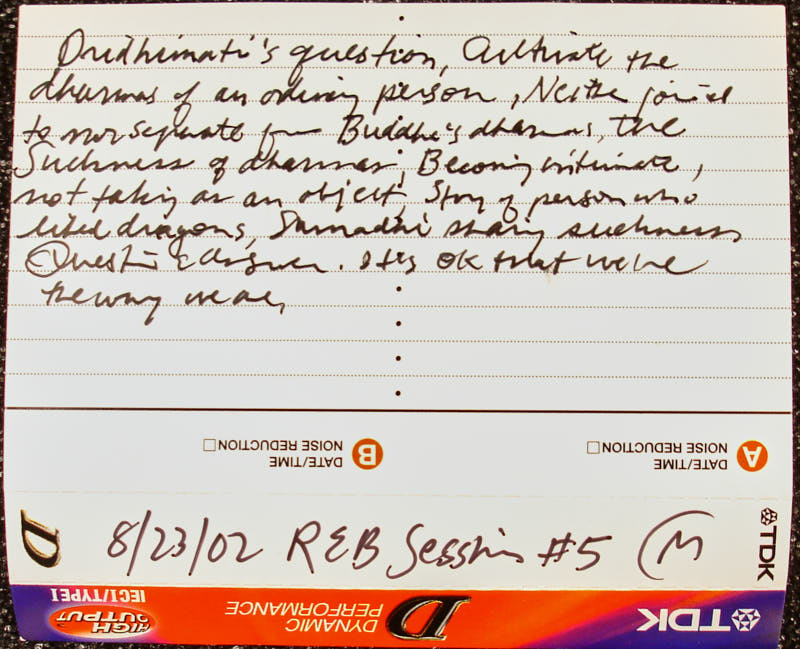 Dridhimati's question, Cultivate the
dharmas of an ordinary person, Neither joined
to nor separate from Buddha's dharmas, the
Suchness of dharmas, Becoming intimate,
not taking as an object, Story of person who
liked dragons, Samadhi suchness
Question & Answer. It's ok that we're
the way we are,
A
DATE/TIME
NOISE REDUCTION
B
DATE/TIME
NOISE REDUCTION
8/23/02 REB Sesshin #5 (M
D
TDK
TDK
D DYNAMIC
PERFORMANCE
HIGH
OUTPUT
IECI/TYPEI